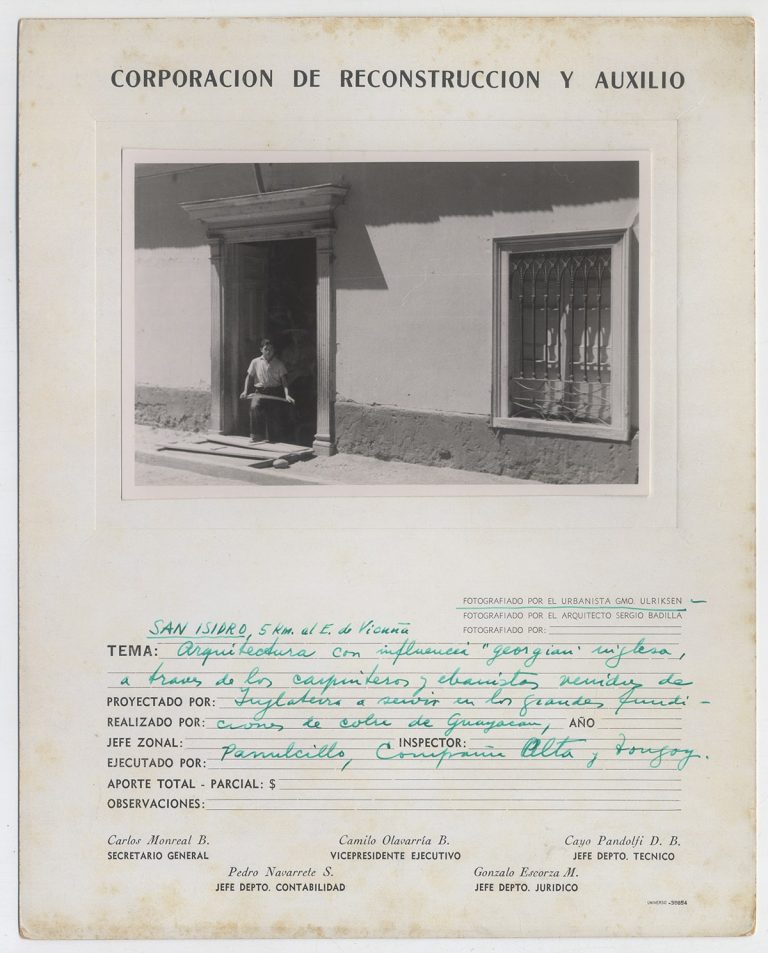 CORPORACION DE RECONSTRUCCION Y AUXILIO
FOTOGRAFIADO POR EL URBANISTA GMO. ULRIKSEN
FOTOGRAFIADO POR EL ARQUITECTO SERGIO BADILLA
FOTOGRAFIADO POR:
SAN ISIDRO, 5 Km. al E. de Vicuña
TEMA: Arquitectura con influencia "georgian" inglesa,
a traves de los carpinteros y ebanistas venidos de
PROYECTADO POR: Inglaterra a servir en los grandes fundi-
REALIZADO POR: ciones de cobre de Guayacan, AÑO
JEFE ZONAL: INSPECTOR:
EJECUTADO POR: Panulcillo, Compañia Alta y Tongoy.
APORTE TOTAL - PARCIAL: $
OBSERVACIONES:
Carlos Monreal B. Camilo Olavarría B. Cayo Pandolfi D. B.
SECRETARIO GENERAL VICEPRESIDENTE EJECUTIVO JEFE DEPTO. TECNICO
Pedro Navarrete S. Gonzalo Escorza M.
JEFE DEPTO. CONTABILIDAD JEFE DEPTO. JURIDICO
UNIVERSO